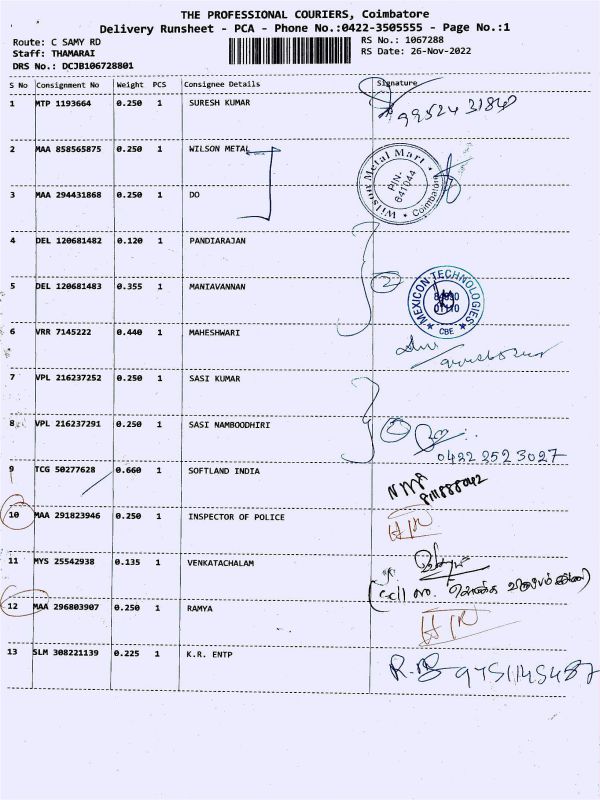 THE PROFESSIONAL COURIERS, Coimbatore
Delivery Runsheet - PCA - Phone No.:0422-3505555 - Page No.:1
Route: C SAMY RD
RS No.: 1067288
Staff: THAMARAI
RS Date: 26-Nov-2022
DRS No.: DCJB106728801
S No Consignment No Weight PCS Consignee Details Signature
1 MTP 1193664 0.250 1 SURESH KUMAR
9952431840
2 MAA 858565875 0.250 1 WILSON METAL
Wilson Metal Mart * Coimbatore *
PIN-
641044
3 MAA 294431868 0.250 1 DO
4 DEL 120681482 0.120 1 PANDIARAJAN
5 DEL 120681483 0.355 1 MANIAVANNAN
2
MEXICON TECHNOLOGIES
* CBE *
6 VRR 7145222 0.440 1 MAHESHWARI
7 VPL 216237252 0.250 1 SASI KUMAR
8 VPL 216237291 0.250 1 SASI NAMBOODHIRI
2
0422 2523027
9 TCG 50277628 0.660 1 SOFTLAND INDIA
10 MAA 291823946 0.250 1 INSPECTOR OF POLICE
11 MYS 25542938 0.135 1 VENKATACHALAM
(cell no.
12 MAA 296803907 0.250 1 RAMYA
13 SLM 308221139 0.225 1 K.R. ENTP
9751145487